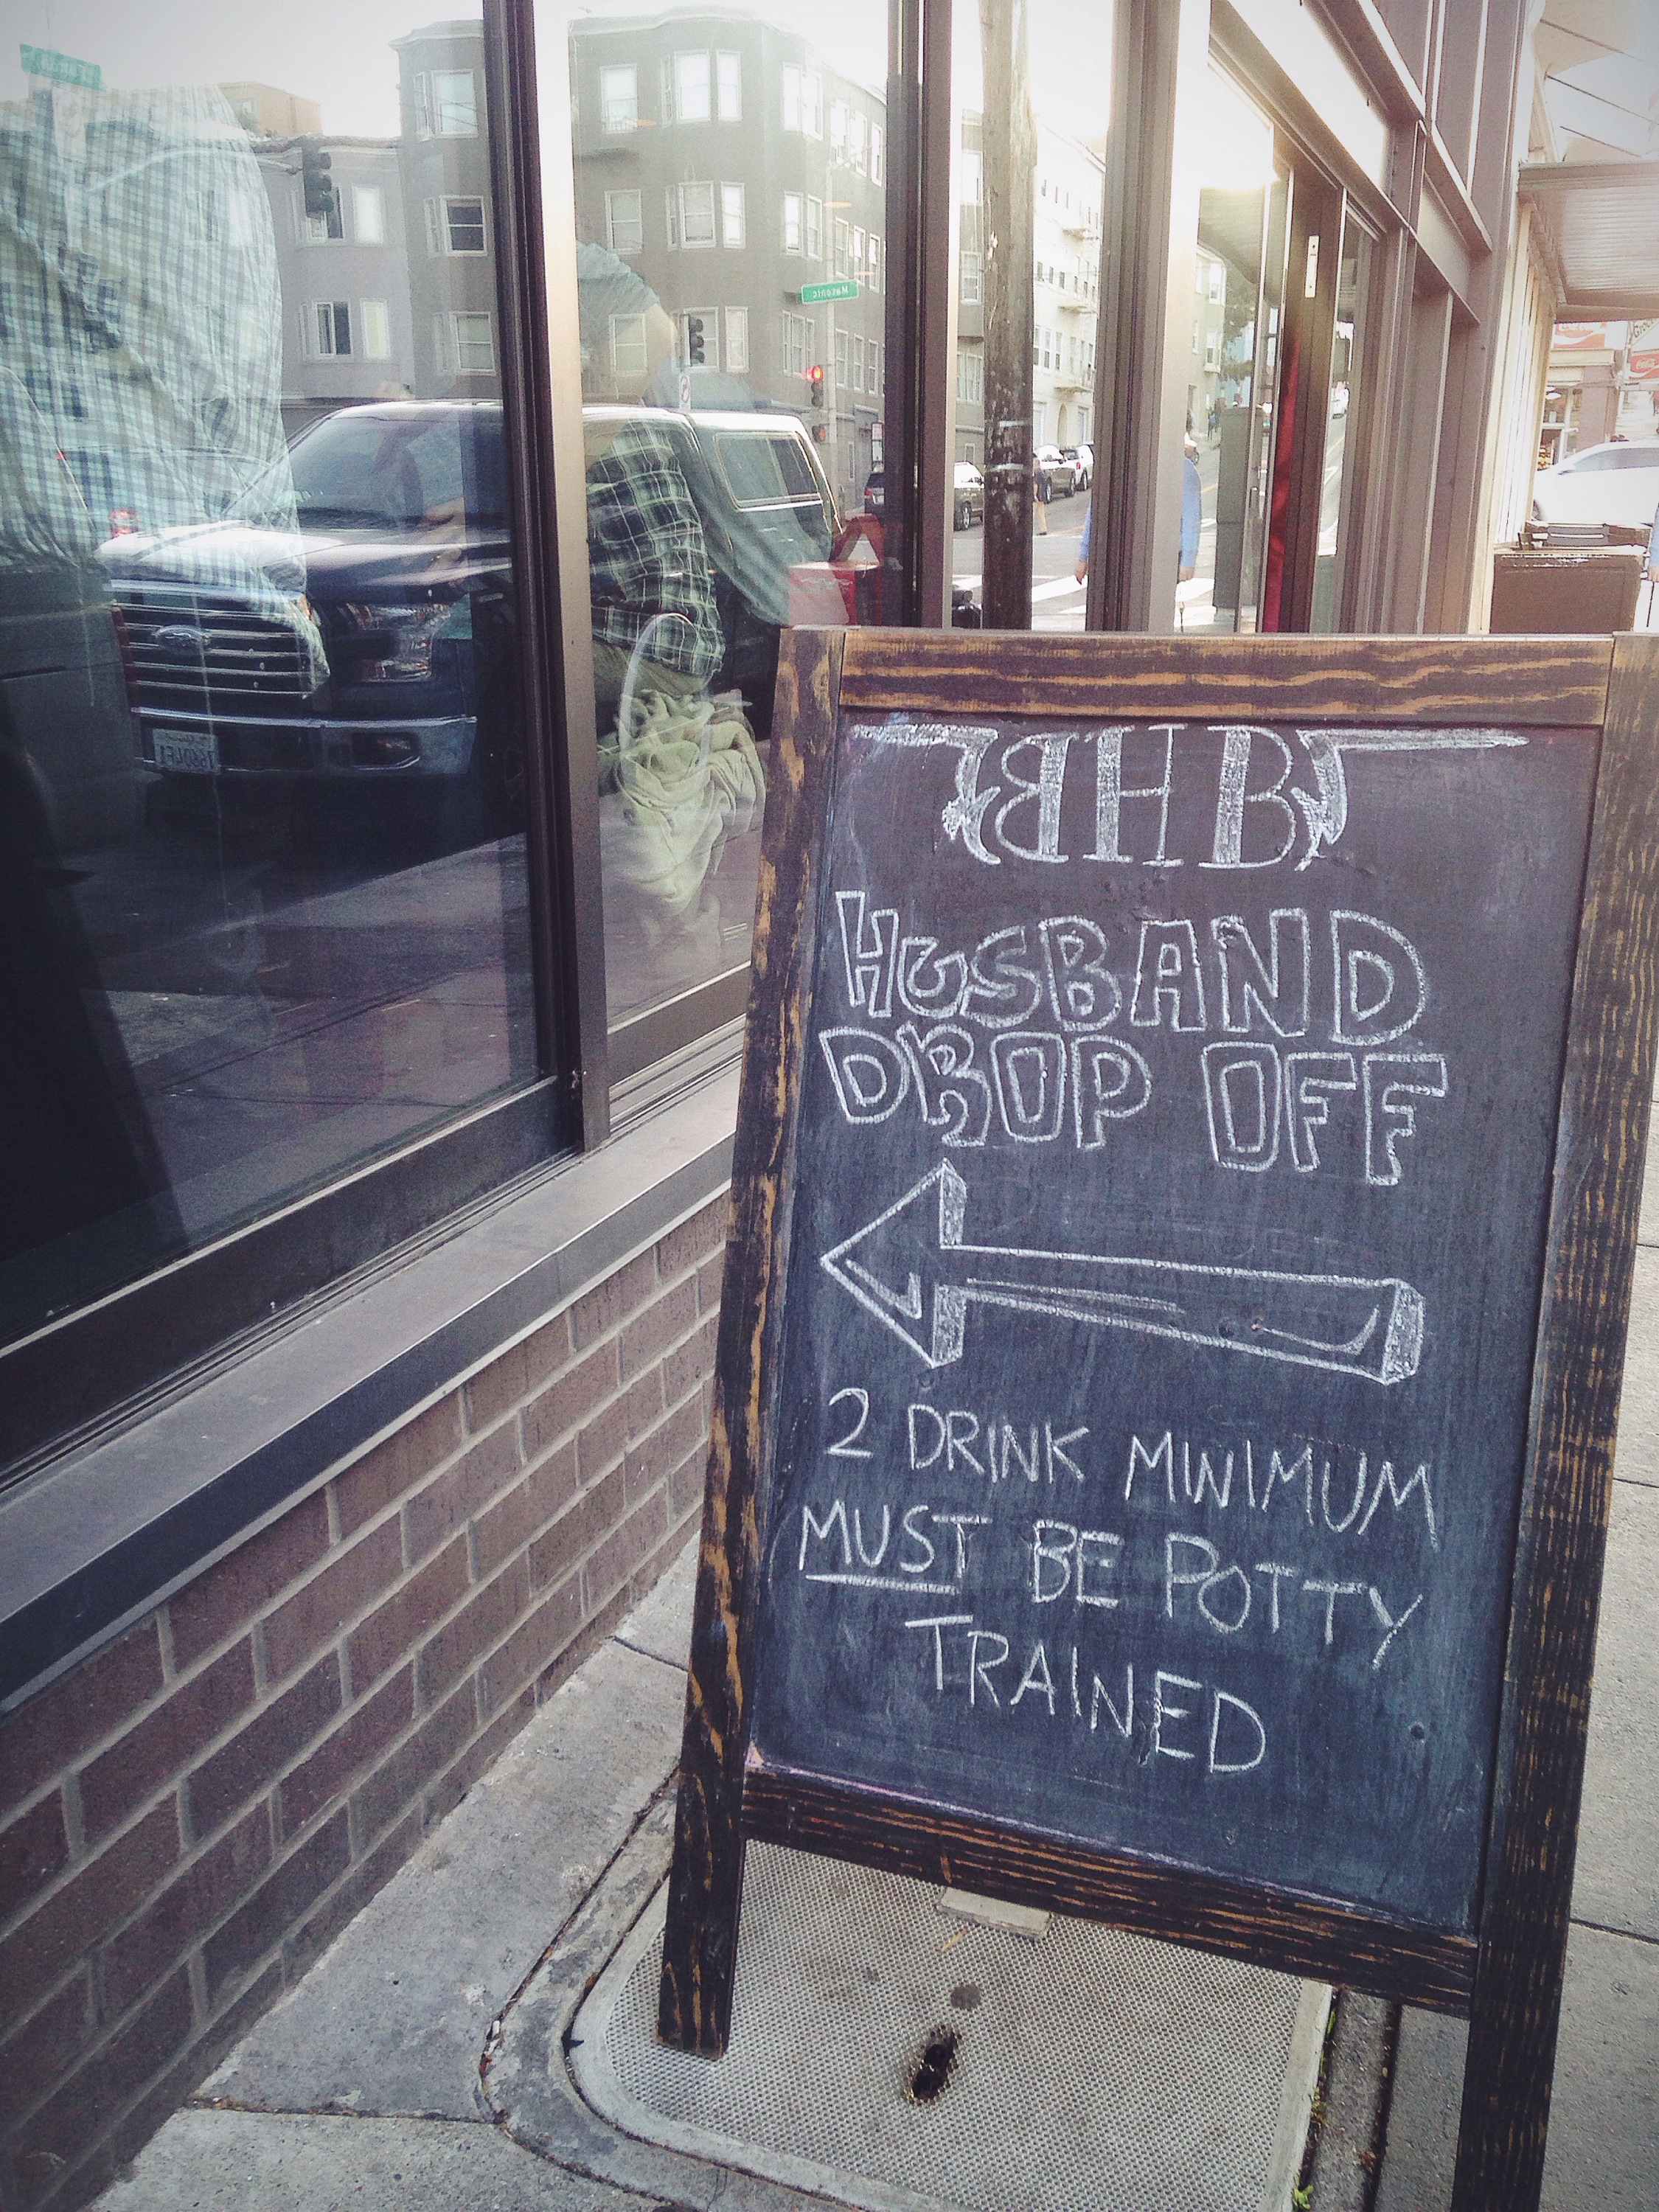 BHB
HUSBAND
DROP OFF
2 DRINK MINIMUM
MUST BE POTTY
TRAINED
Masonic